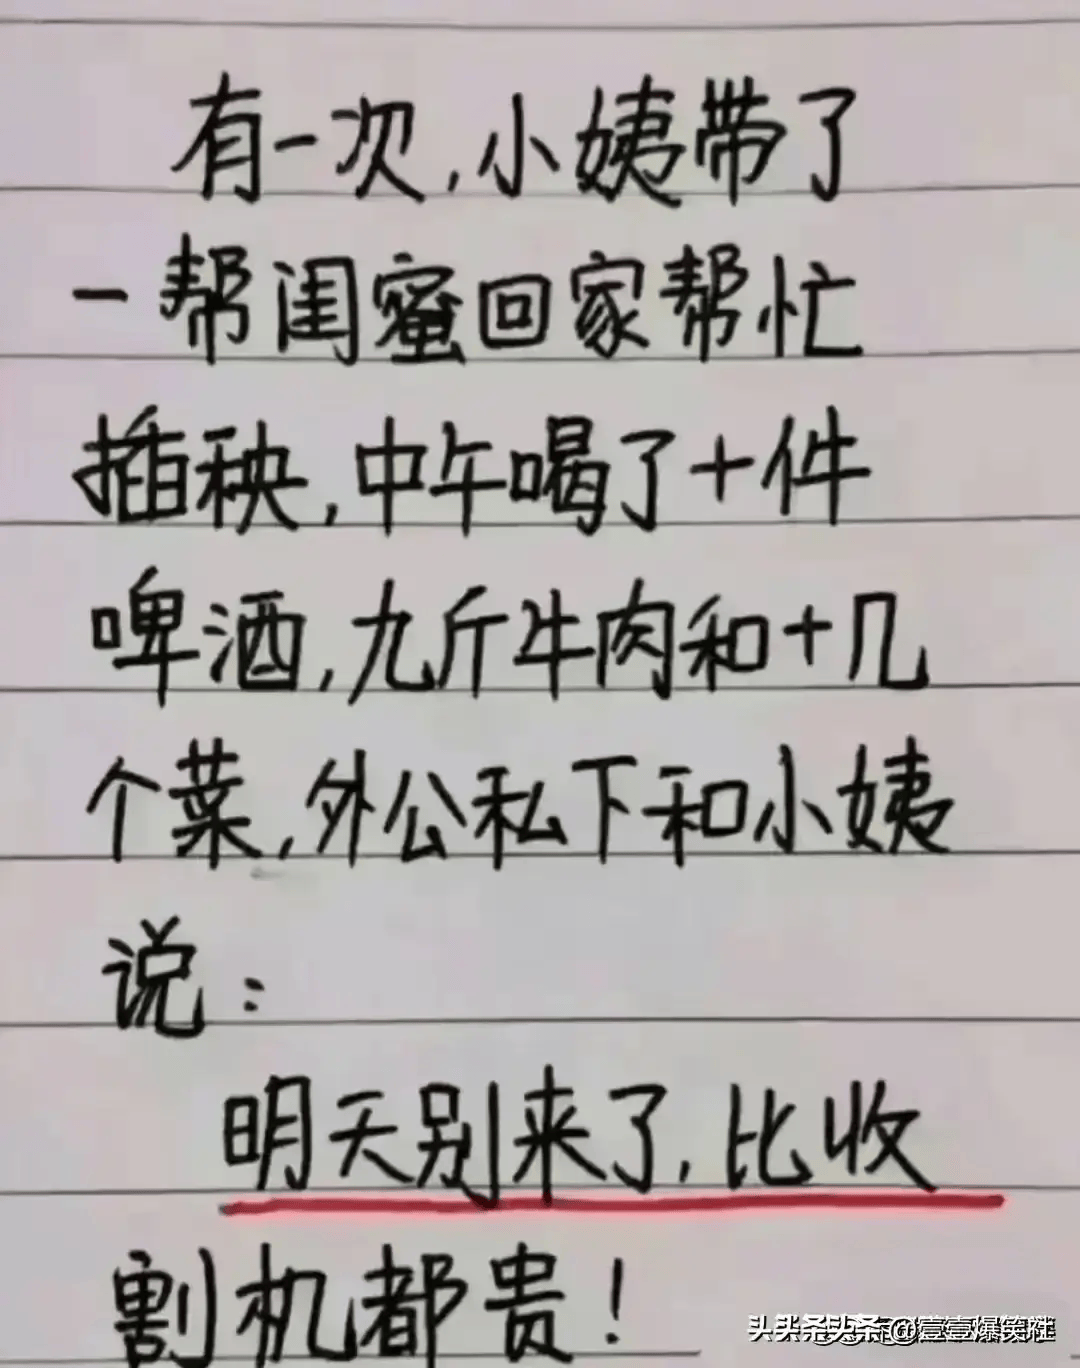 有一次,小姨带了
一帮闺蜜回家帮忙
插秧,中午喝了十件
啤酒,九斤牛肉和十几
个菜,外公私下和小姨
说:
明天别来了,比收
割机都贵!
头条 @壹壹爆笑班